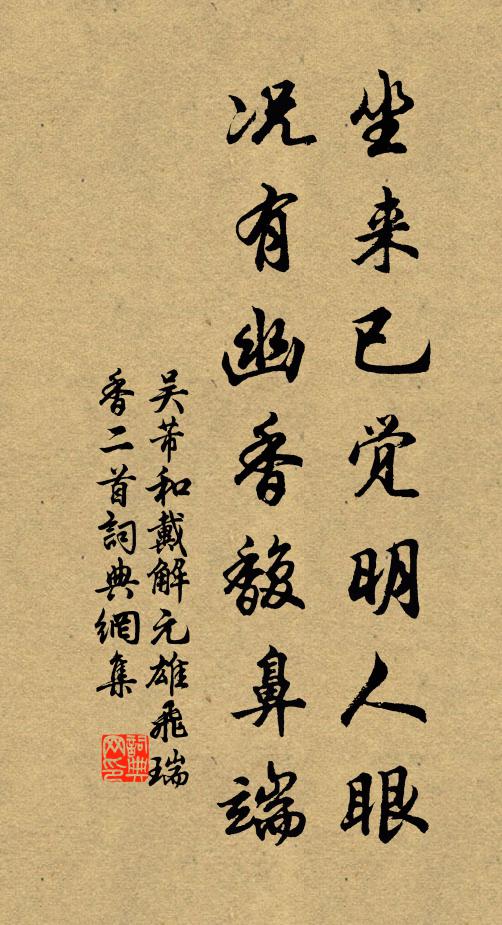 坐来已觉明人眼
况有幽香馥鼻端
吴芾和戴解元雄飞瑞
香二首詞典網集
詞典网印